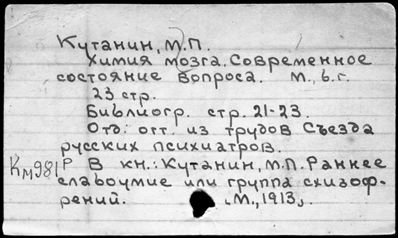 Кутанин, М.П.
Химия мозга. Современное
состояние вопроса. М., б.г.
23 стр.
Библиогр. стр. 21-23.
Отд. отт. из трудов Съезда
русских психиатров.
Км981 р В кн.: Кутанин, М.П. Раннее
слабоумие или группа схизоф-
рений. М., 1913.